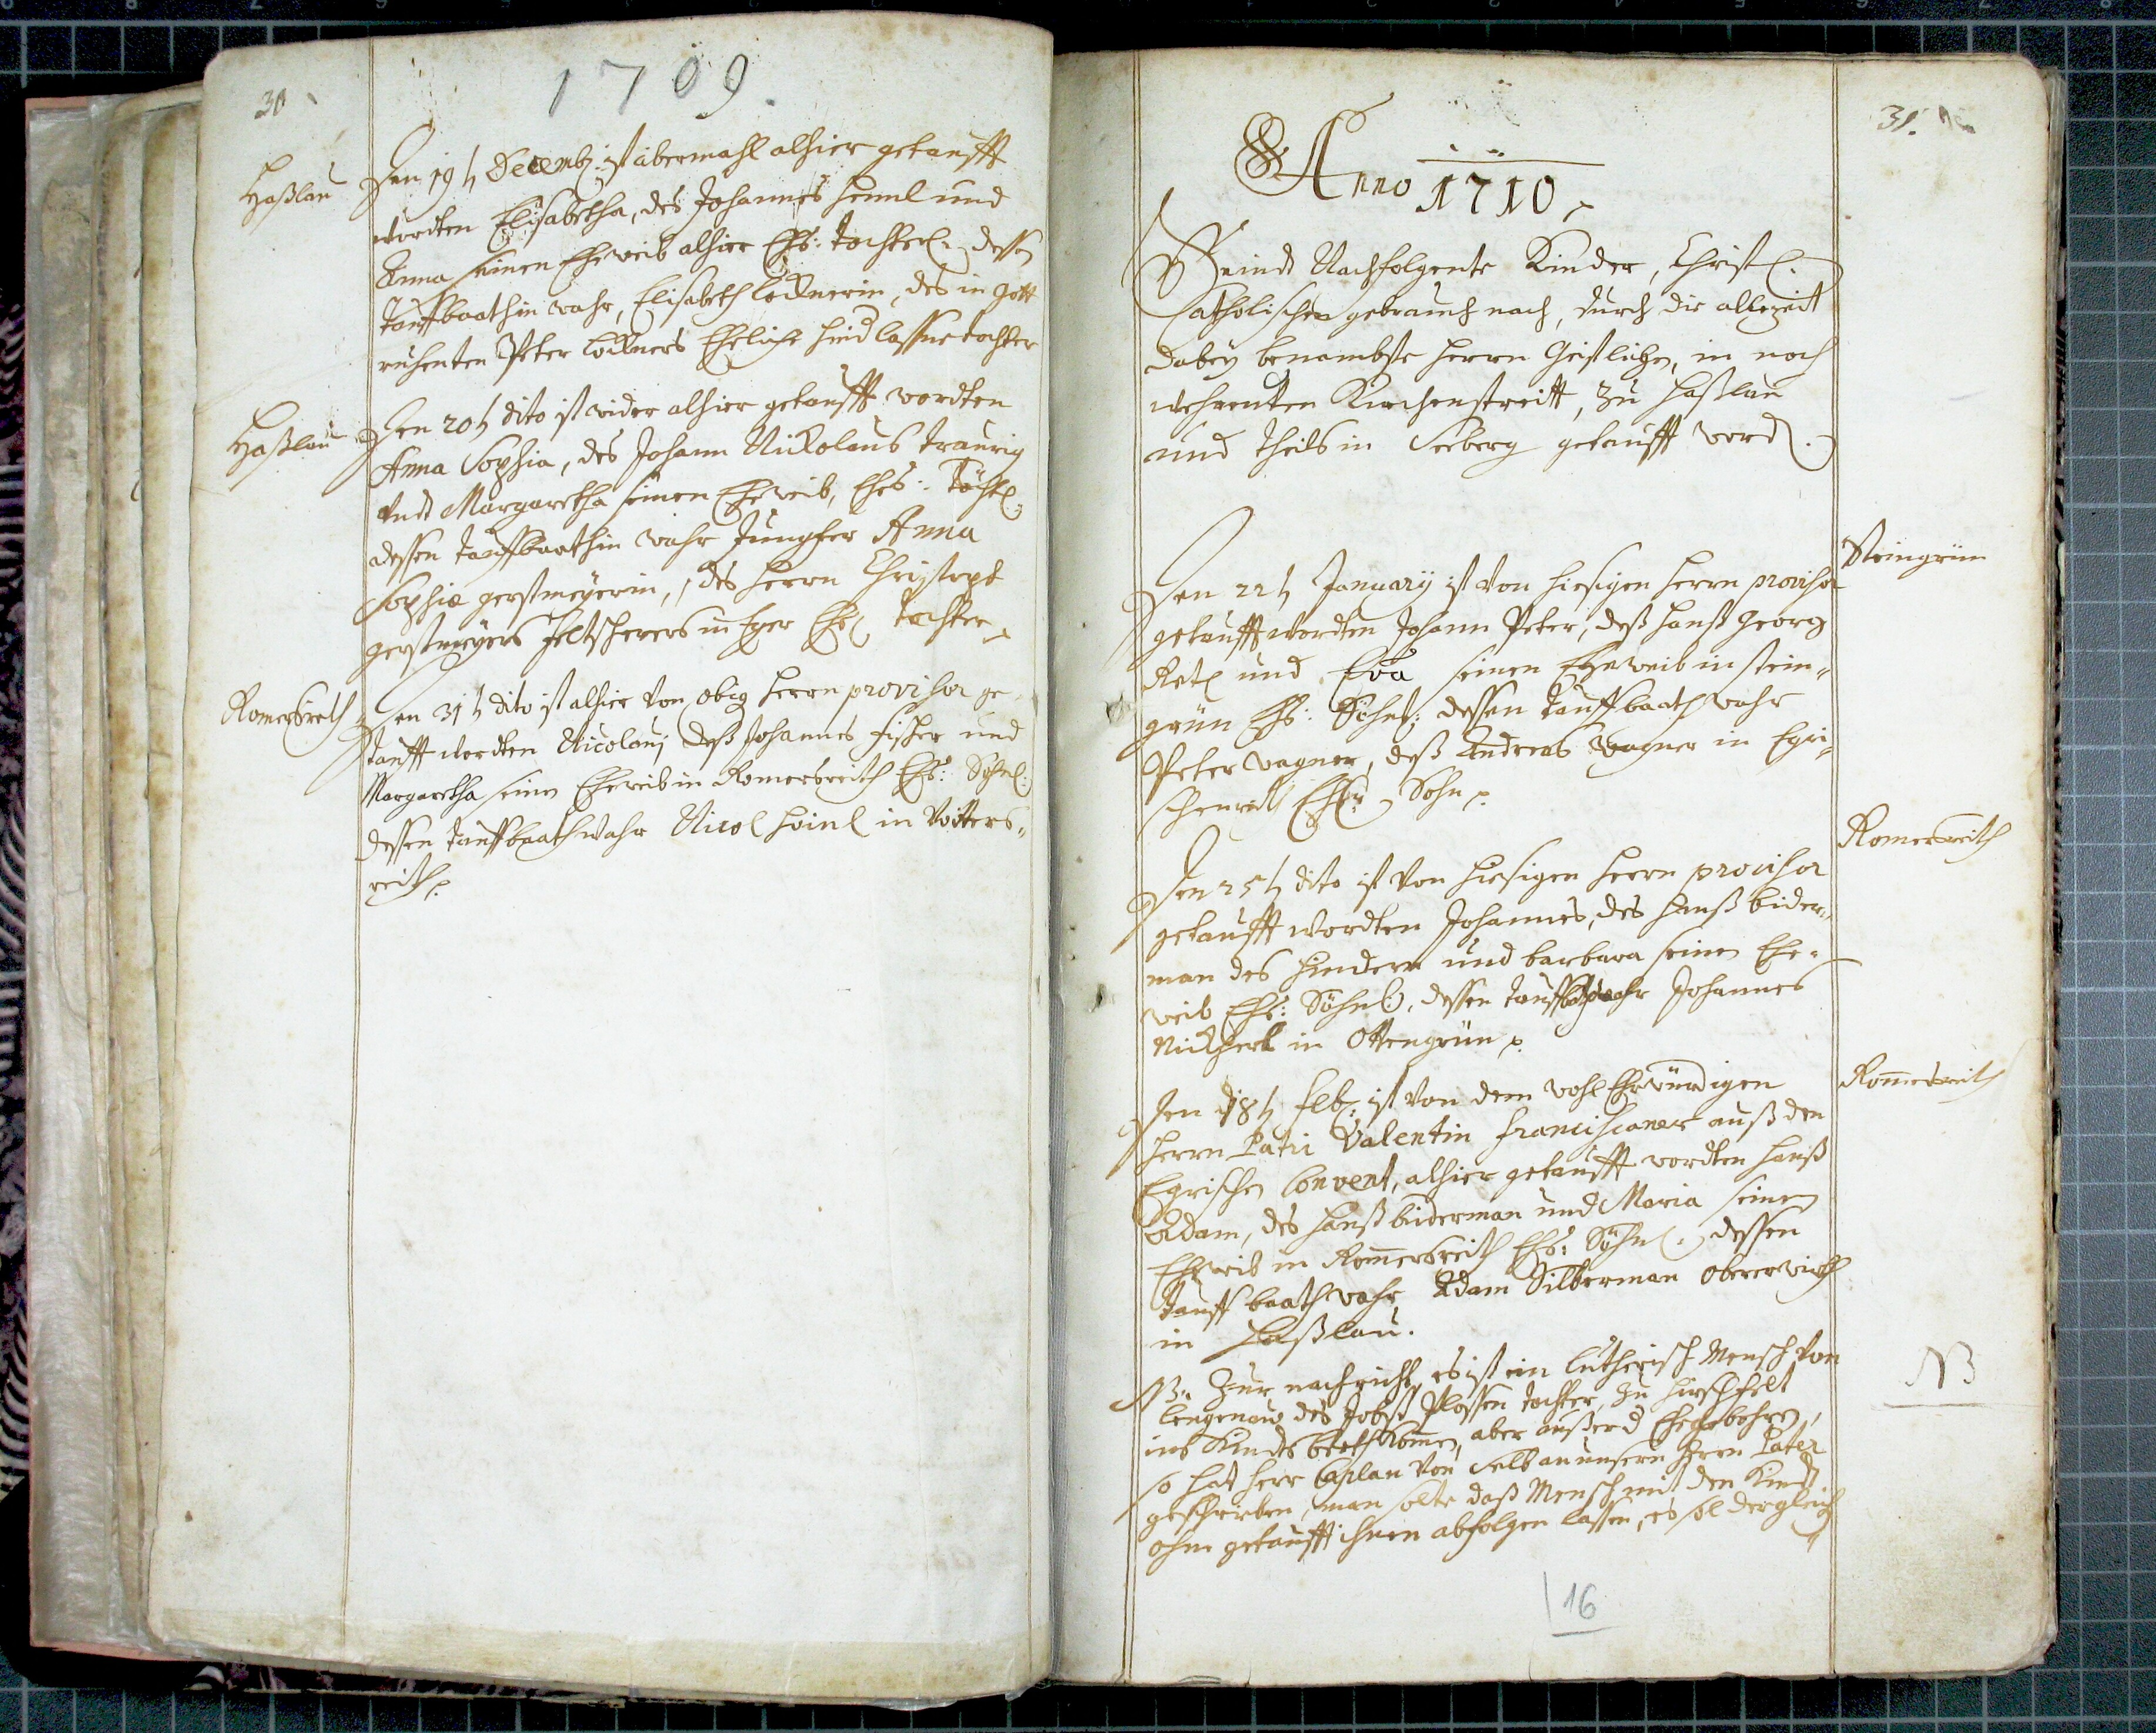 30
1709.
Haßlau
Den 19t Decemb: ist abermahl alhier getaufft
wordten Elisabetha, des Johannes Heinl und
Anna seinen Eheweib alhier Ehl: tochterl. dessen
tauffbaathin wahr, Elisabeth Locknerin, des in Gott
ruhenten Peter Lockners Eheliche hind lassne tochter
Haßlau
Den 20t dito ist wider alhier getaufft wordten
Anna Sophia, des Johann Nickolaus traurig
Undt Margaretha seinen Eheweib, Ehl: Töchtl:
dessen tauffbaathin wahr Jungfer Anna
Sophia gerstmeyerin, des Herrn Christoph
gerstmeyers feltscherers in Eger Ehl tochter
Romersreith
Den 31t dito ist alhier Von obig Herrn provisor ge-
taufft wordten Nicolauß deß Johannes fischer und
Margaretha seinen Eheweib in Romersreith Ehl: Söhnl:
dessen tauffbaath wahr Nicol Heinl in Voitters-
reith
31.
Anno 1710
Seindt Nachfolgente Kinder, Christl.
Catholischen gebrauch nach, durch die allezeit
dabey benambste Herrn Geistliche, in noch
wehrenten Kirchenstreitt, zu Haßlau
und theils in Seeberg getaufft word.
Steingrün
Den 22t January ist Von hiesigen Herrn provisor
getaufft wordten Johann Peter, deß Hanß Georg
und Eva seinen Eheweib in Stein-
grün Ehl: Söhnl: dessen tauffbaath wahr
Peter wagner, deß Andreas Wagner in Egri-
schenreith Ehl: Sohn
Romersreith
Den 25t dito ist Von hiesigen Herrn provisor
getaufft wordten Johannes, des Hanß bider-
man des hindern und barbara seinen Ehe-
weib Ehl: Söhnl: dessen tauffbath wahr Johannes
Nickherl in Ottengrün
Romersreith
Den 18t Feb: ist Von dem wohl Ehrwürdigen
Herrn Patri Valentin Franciscaner auß den
Egrischen Convent, alhier getaufft wordten Hanß
Adam, des Hanß biderman und Maria seinen
Eheweib in Romersreith Ehl: Söhnl: dessen
tauff baath wahr, Adam Silberman Obererwirth
in Haßlau.
NB
NB: Zur nachricht, es ist ein lutherisch Mensch Von
Lengenau des Jobst Plossen tochter, zu Hirschfelt
ins Kindtsbeth komen, aber außer d Ehe gebohren,
so hat Herr Caplan Von Selb an unsern Herrn Pater
geschrieben, man solte daß Mensch mit den Kindt
ohne getaufft ihnen abfolgen lassen, es sol dergleich
16